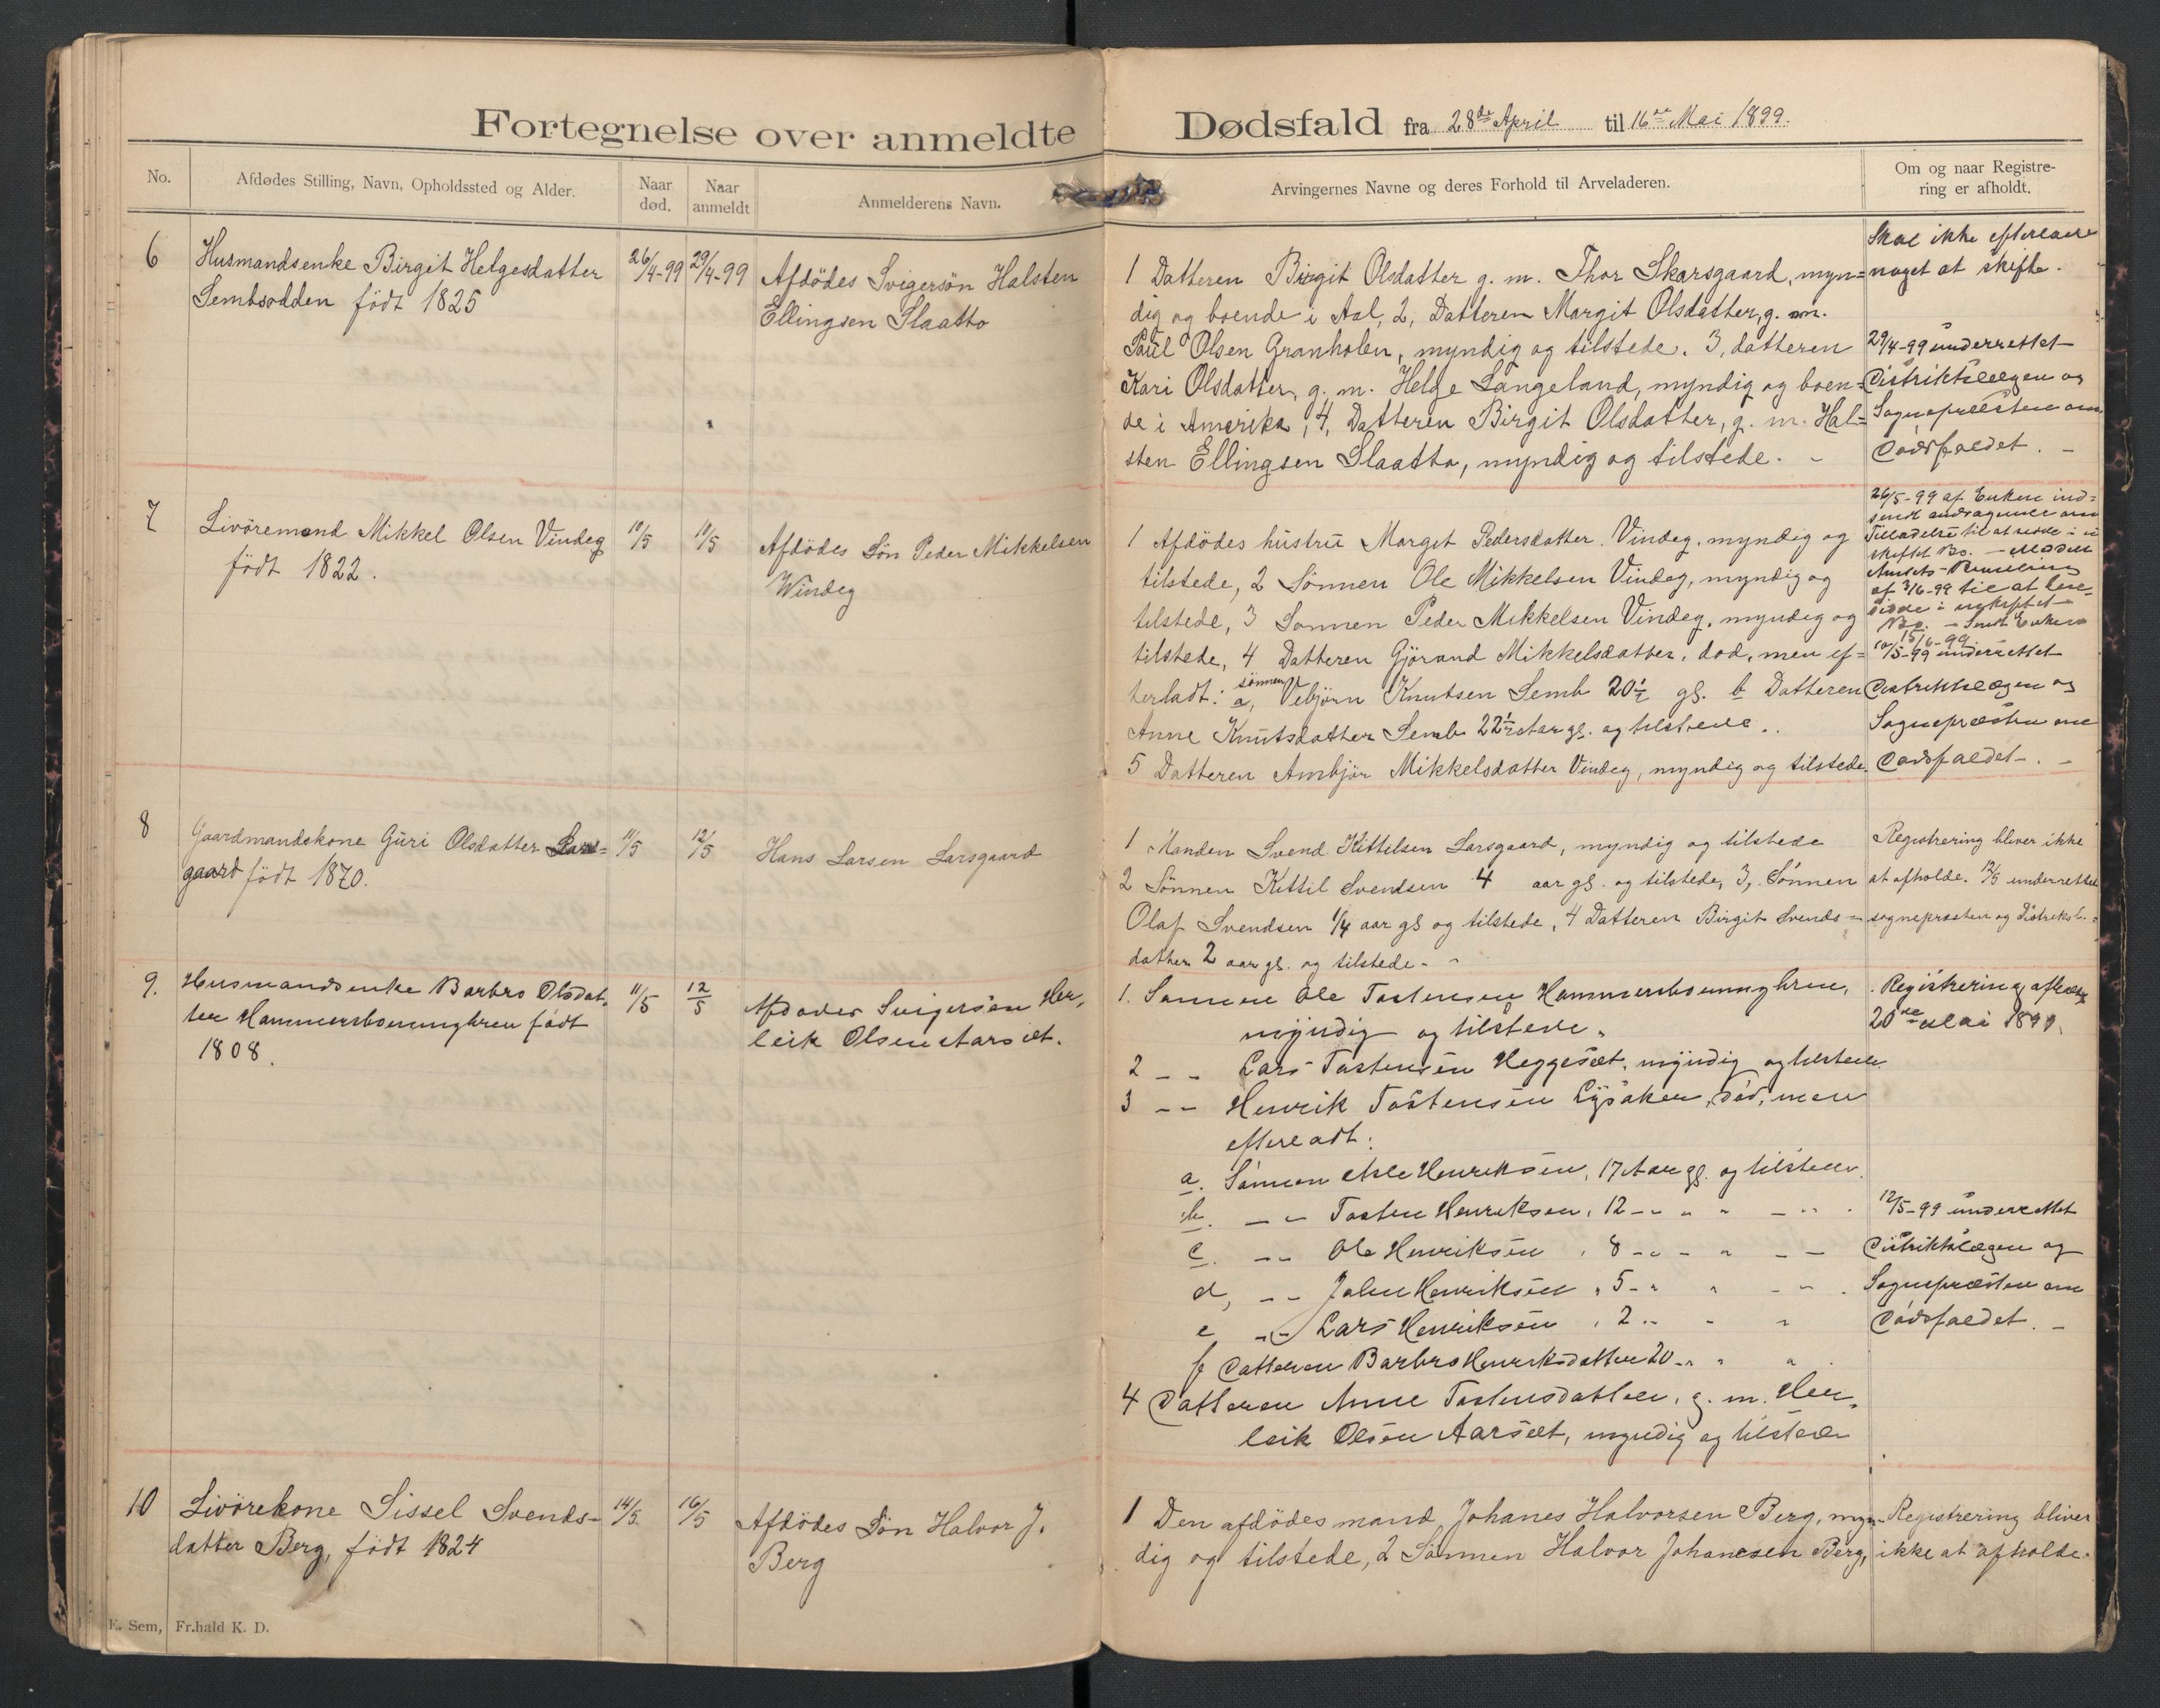 Fortegnelse over anmeldte Dødsfald fra 28de April til 16de Mai 1899.
No.
Afdødes Stilling, Navn, Opholdssted og Alder.
Naar død.
Naar anmeldt
Anmelderens Navn.
Arvingernes Navne og deres Forhold til Arveladeren.
Om og naar Registre-
ring er afholdt.
6
Husmandsenke Birgit Helgesdatter
Sembsodden födt 1825
26/4-99
29/4-99
Afdödes Svigersön Halsten
Ellingsen Slaatto
1 Datteren Birgit Olsdatter g. m. Thor Skarsgaard, myn=
dig og boende i Aal, 2, Datteren Margit Olsdatter, g. m.
Paul Olsen Granholen, myndig og tilstede. 3, datteren
Kari Olsdatter, g. m. Helge Langeland, myndig og boen=
de i Amerika, 4, Datteren Birgit Olsdatter, g. m. Hal=
sten Ellingsen Slaatto, myndig og tilstede. -
Skal ikke efterlade
noget at skifte.
29/4-99 underrettet
Distriktslægen og
Sognepræsten om
Dödsfaldet. -
7
Livöremand Mikkel Olsen Vindeg
födt 1822.
10/5
11/5
Afdödes Sön Peder Mikkelsen
Windeg
1 Afdödes hustru Marget Pedersdatter Vindeg, myndig og
tilstede, 2 Sönnen Ole Mikkelsen Vindeg, myndig og
tilstede, 3 Sonnen Peder Mikkelsen Vindeg, myndig og
tilstede, 4 Datteren Gjörand Mikkelsdatter, död, men ef=
terladt: a, sönnen Vebjörn Knutsen Semb 20½ gl. b Datteren
Anne Knutsdatter Semb 22½ Aar gl. og tilstede..
5 Datteren Ambjör Mikkelsdatter Vindeg, myndig og tilstede.
26/5-99 af Enken ind=
sendt andragende om
Tilladelse til at sidde i u
skiftet Bo. - Meddelt
Amtets Bevilling
af 3/6-99 til at hen=
sidde i uskiftet
Bo. - Sendt Enken
15/6-99
10/5-99 underrettet
Distriktslægen og
Sognepræsten om
Dödsfaldet. -
8
Gaardmandskone Guri Olsdatter Lars=
gaard födt 1870.
11/5
12/5
Hans Larsen Larsgaard
1 Manden Svend Kittelsen Larsgaard, myndig og tilstede
2 Sönnen Kittil Svendsen 4 aar gl. og tilstede, 3, Sönnen
Olaf Svendsen ¼ aar gl og tilstede, 4 Datteren Birgit Svends=
datter 2 aar gl. og tilstede. -
Registrering bliver ikke
at afholde. 12/5 underrettet
sognepræsten og Distriktsl.
9.
Husmandsenke Barbro Olsdat=
ter Hammersboennghren födt
1808.
11/5
12/5
Afdödes Svigersön Her=
leik Olsen Aarsæt.
1. Sønnen Ole Tostensen Hammersboennghren,
myndig og tilstede.
2 - - Lars Tostensen Heggesæt, myndig og tilstede
3 - - Henrik Tostensen Lysaker, död, men
efterladt:
a. Sønnen Asle Henriksen, 17 Aar gl. og tilstede.
b. - - Tosten Henriksen, 12 - - - - - - .
c. - - Ole Henriksen, 8 - - - - - -
d, - - John Henriksen, 5 - - - - - .
e - - Lars Henriksen, 2 - - - -
f Datteren Barbro Henriksdatter 20 - - - -
4 Datteren Anne Tostensdatter, g. m. Her=
leik Olsen Aarsæt, myndig og tilstede
Registrering afholdt
20de Mai 1899.
12/5-99 underrettet
Distriktslægen og
Sognepræsten om
Dödsfaldet. -
10
Livörekone Sissel Svends=
datter Berg, födt 1824
14/5
16/5
Afdödes Sön Halvor J.
Berg
1 Den afdödes mand Johanes Halvorsen Berg, myn=
dig og tilstede, 2 Sönnen Halvor Johanesen Berg,
Registrering bliver
ikke at afholde.
E. Sem, Fr.hald K. D.